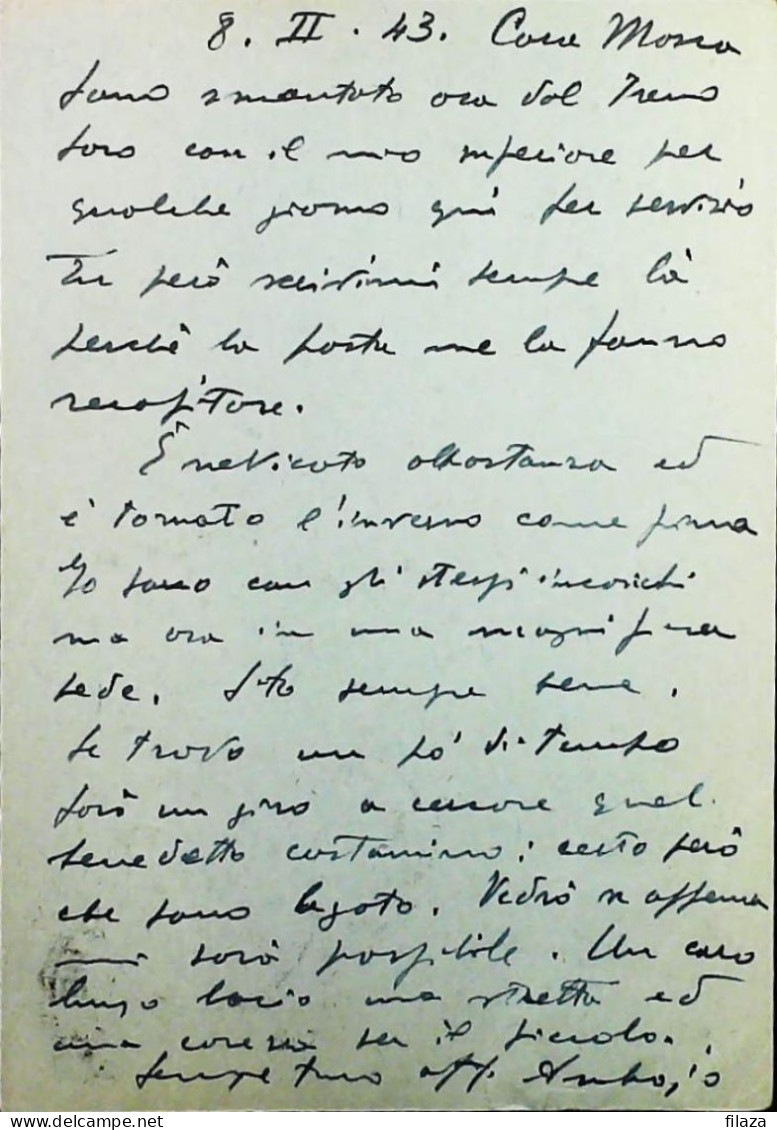 8. II. 43. Cara Mossa
sono smontato ora dal Treno
sarò con il mio superiore per
qualche giorno qui per servizio
Tu però scrivimi sempre là
perchè la posta me la fanno
recapitare.
È nevicato abbastanza ed
è tornato l'inverno come prima
Io sono con gli stessi incarichi
ma ora in una magnifica
sede. Sto sempre bene.
Se trovo un pò di tempo
farò un giro a cercare quel
benedetto costumino: certo però
che sono legato. Vedrò se appena
mi sarà possibile. Un caro
lungo bacio una stretta ed
una carezza per il piccolo.
Sempre tuo aff. Ambogio
filaza